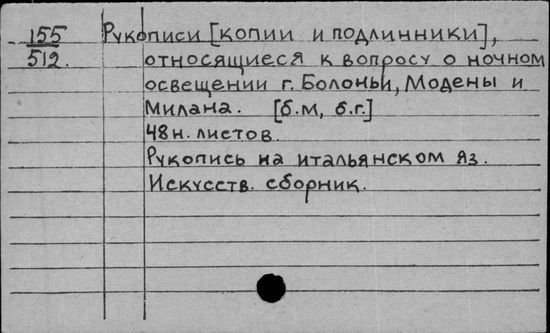 155 Рукописи [копии и подлинники],
512. относящиеся к вопросу о ночном
освещении г. Болоньи, Модены и
Милана. [б.м, б.г.]
48 н. листов.
Рукопись на итальянском яз.
Искусств. сборник.